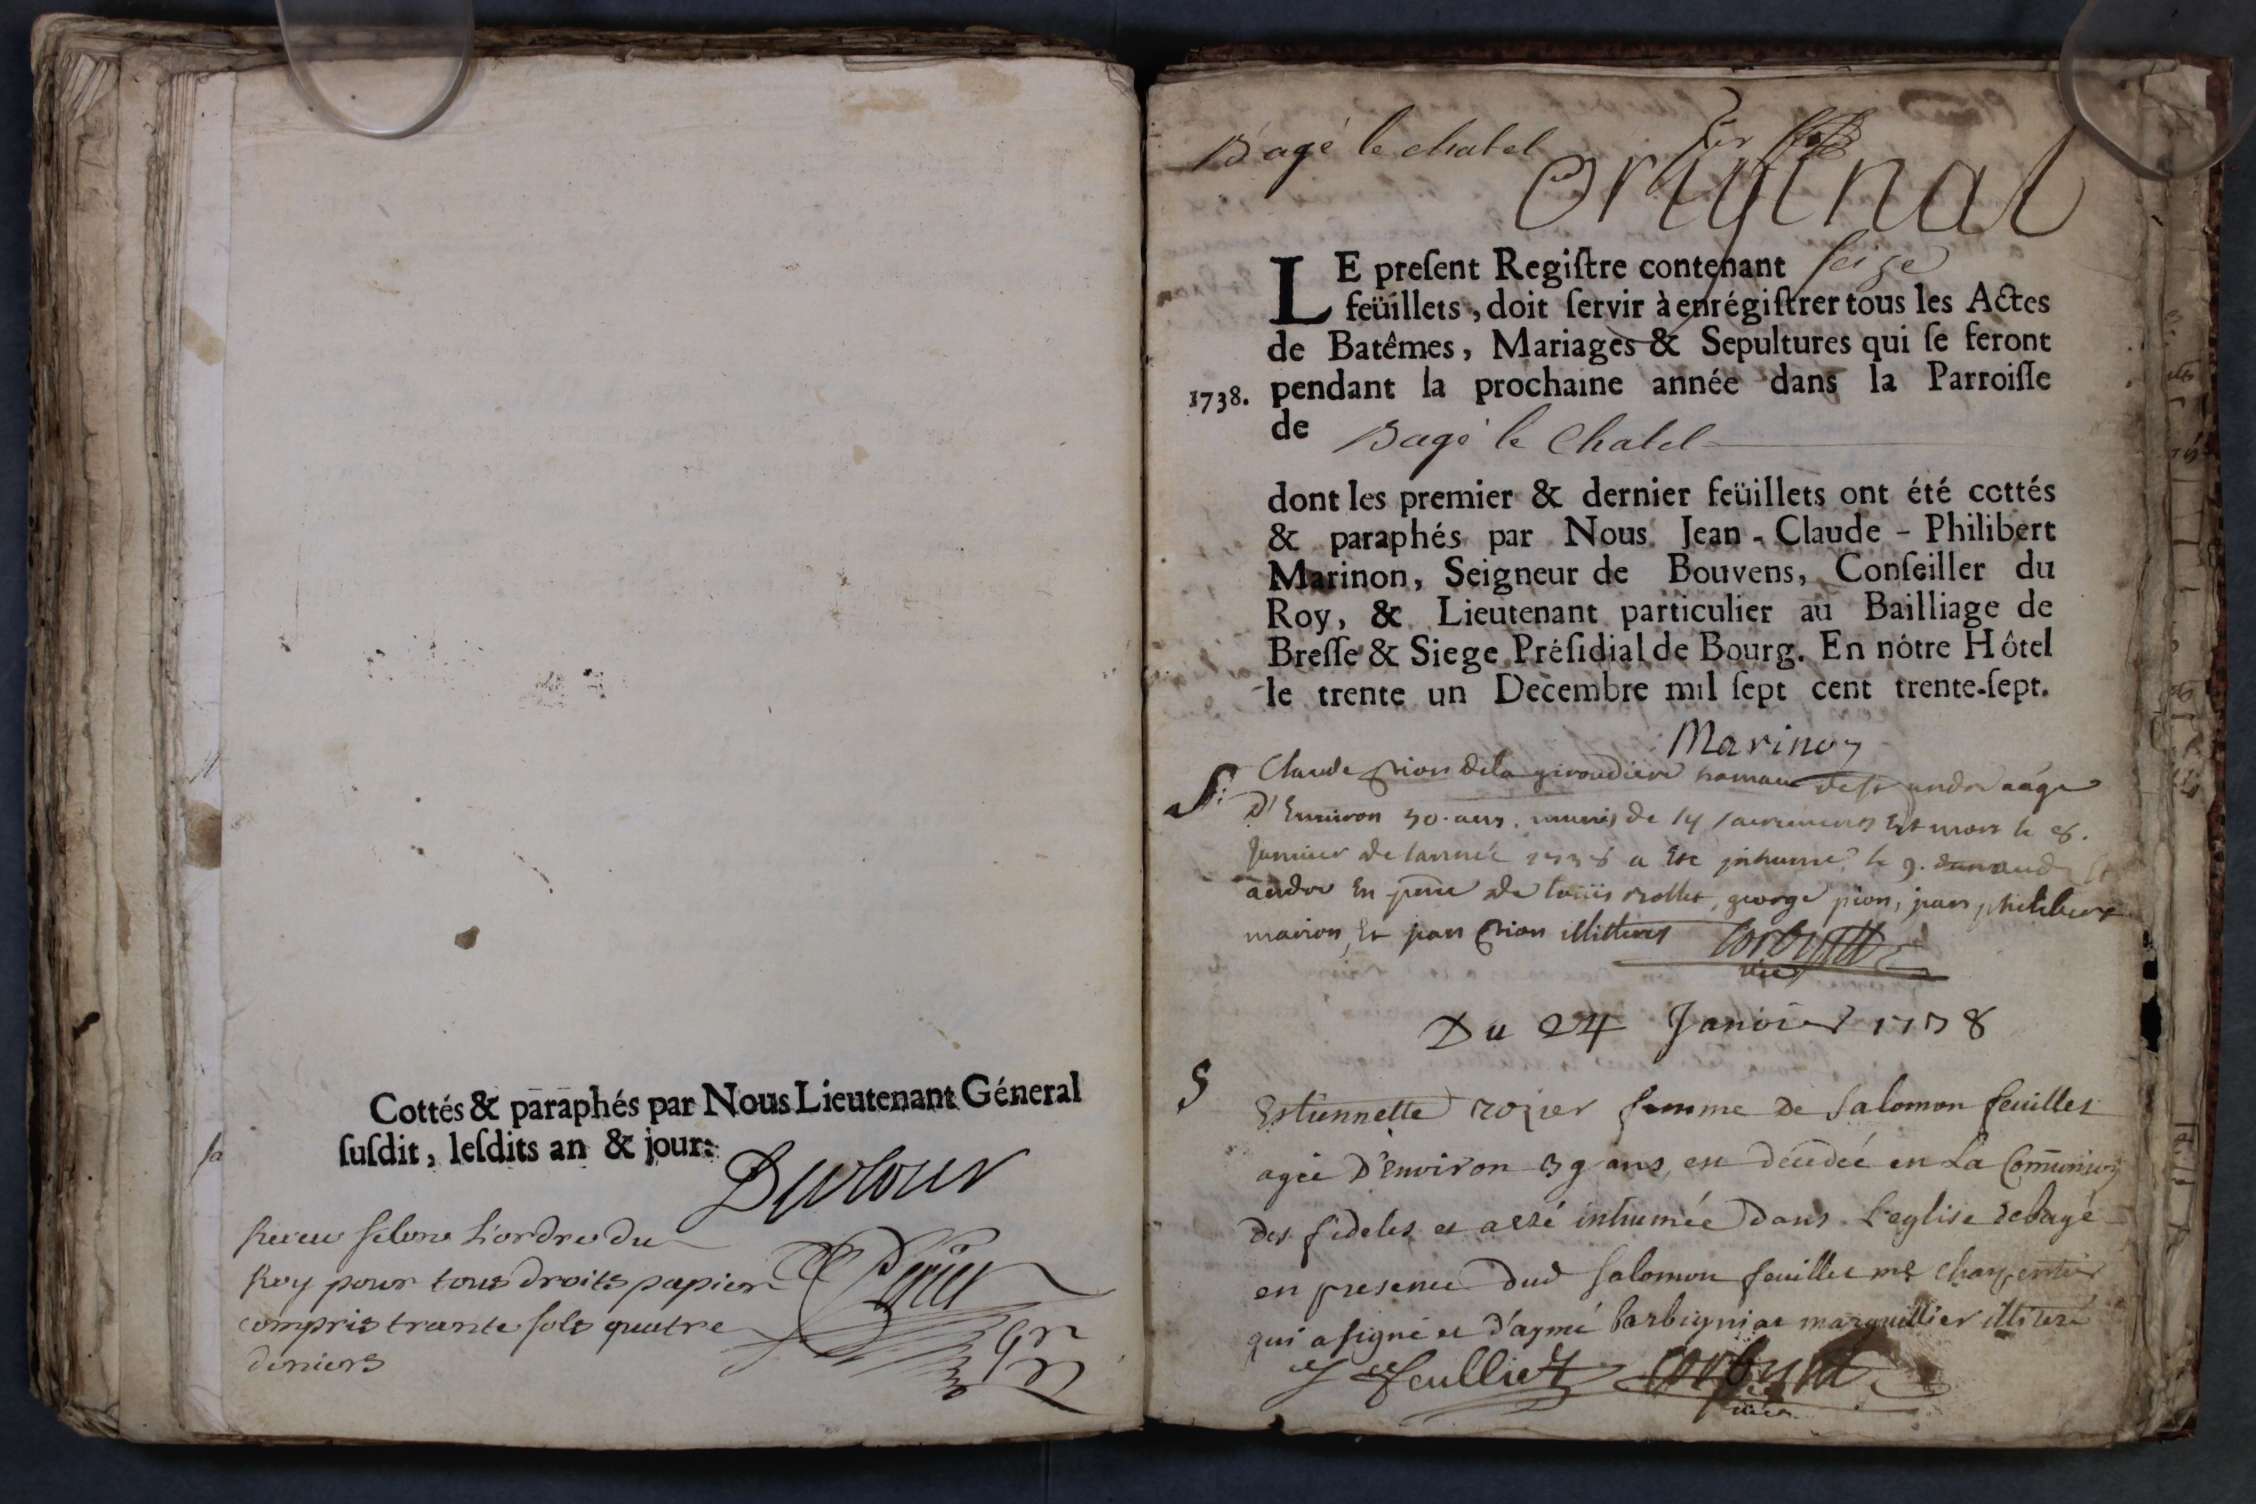 Cottés & paraphés par Nous Lieutenant Géneral
ſuſdit, leſdits an & jour.
Dufour
Receu selons L'ordre du
Roy pour tous droits papier
compris trante sols quatre
deniers
Bagé le chatel
original
LE preſent Regiſtre contenant seize
feüillets, doit ſervir à enrégiſtrer tous les Actes
de Batêmes, Mariages & Sepultures qui ſe feront
1738. pendant la prochaine année dans la Parroiſſe
de Bagé le Chatel
dont les premier & dernier feüillets ont été cottés
& paraphés par Nous Jean-Claude-Philibert
Marinon, Seigneur de Bouvens, Conſeiller du
Roy, & Lieutenant particulier au Bailliage de
Breſſe & Siege Préſidial de Bourg. En nôtre Hôtel
le trente un Decembre mil ſept cent trente-ſept.
Marinon
S. Claude pion de la giroudiere hameau de st andre aagé
D'Environ 50. ans. munis de ses sacremens Est mort le 8.
Janvier de lannée 1738 a Eté inhumé le 9. aud. st
andre En pnce de louis rollet, george pion, jean philibert
marion, Et jean pion illitterés
Du 24 Janvier 1738
S Estiennette rozier femme de Salomon feuillet
agée D'environ 39 ans est décédée en La Comunion
des fideles et a esté inhumée dans L'eglise de bagé
en presence dud Salomon feuillet me charpentier
qui a signé et d'aymé barbigniat marguillier illiteré
S Feulliet